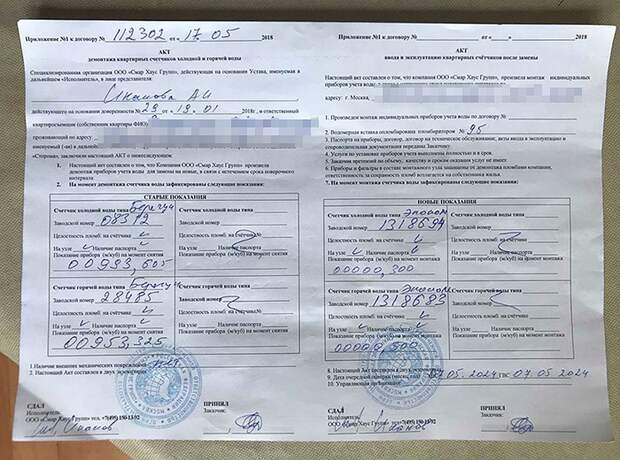 Приложение №1 к договору № 112302 от « 17.05 2018
АКТ
демонтажа квартирных счетчиков холодной и горячей воды
Специализированная организация ООО «Смар Хаус Групп», действующая на основании Устава, именуемая в
дальнейшем «Исполнитель», в лице представителя:
Иванова АИ
действующего на основании доверенности № 29 от 19.01 2018г., и ответственный
квартиросъемщик (собственник квартиры ФИО)
проживающий по адресу:
именуемый (-ая) в дальнейшем
«Стороны», заключили настоящий АКТ о нижеследующем:
1. Настоящий АКТ составлен о том, что Компания ООО «Смар Хаус Групп» произвела
демонтаж приборов учета воды для замены на новые, в связи с истечением срока поверочного
интервала
2. На момент демонтажа счетчика воды зафиксированы следующие показания:
СТАРЫЕ ПОКАЗАНИЯ
Счетчик холодной воды типа Берегун
Заводской номер 08312
Целостность пломб: на счётчике
На узле Наличие паспорта
Показание прибора (м/куб) на момент снятия
00993,605
Счетчик холодной воды типа
Заводской номер
Целостность пломб: на счётчике
На узле Наличие паспорта
Показание прибора (м/куб) на момент снятия
Счетчик горячей воды типа Берегун
Заводской номер 28485
Целостность пломб: на счётчике
На узле Наличие паспорта
Показание прибора (м/куб) на момент снятия
00953,325
Счетчик горячей воды типа
Заводской номер
Целостность пломб: на счётчике
На узле Наличие паспорта
Показание прибора (м/куб) на момент снятия
1.Наличие внешних механических повреждений
2. Настоящий Акт составлен в двух
СДАЛ
Исполнитель:
ООО «Смар Хаус Групп» тел. +7(495) 150-13-92
Иванов
ПРИНЯЛ
Заказчик:
Приложение №1 к договору № от « » 2018
АКТ
ввода в эксплуатацию квартирных счётчиков после замены
Настоящий акт составлен о том, что компания ООО «Смар Хаус Групп», произвела монтаж индивидуальных
приборов учета воды по
адресу: г. Москва,
1. Произведен монтаж индивидуальных приборов учета воды по договору №
2. Водомерная вставка опломбирована пломбиратором № 95
3. Паспорта на приборы, договор, договор на техническое обслуживание, акты ввода в эксплуатацию и
сопроводительная документация переданы Заказчику
4. Услуги по установке приборов учета выполнены полностью и в срок.
5. Заказчик претензий по объему, качеству и срокам оказания услуг не имеет.
6. Приборы и фильтры в составе монтажного узла защищены от демонтажа пломбами компании,
ответственность за сохранность пломб возлагается на собственника жилья.
7. На момент монтажа счетчика воды зафиксированы следующие показания:
НОВЫЕ ПОКАЗАНИЯ
Счетчик холодной воды типа Эконом
Заводской номер 1318694
Целостность пломб: на счётчике
На узле Наличие паспорта
Показание прибора (м/куб) на момент монтажа
00000,300
Счетчик холодной воды типа
Заводской номер
Целостность пломб: на счётчике
На узле Наличие паспорта
Показание прибора (м/куб) на момент монтажа
Счетчик горячей воды типа Эконом
Заводской номер 1318683
Целостность пломб: на счётчике
На узле Наличие паспорта
Показание прибора (м/куб) на момент монтажа
Счетчик горячей воды типа
Заводской номер
Целостность пломб: на счётчике
На узле Наличие паспорта
Показание прибора (м/куб) на момент монтажа
8. Настоящий Акт составлен в двух экземплярах
9. Дата очередной поверки 07.05.2024 гвс 07.05.2024
10. Управляющая организация
СДАЛ
Исполнитель:
ООО «Смар Хаус Групп» тел. +7(495) 150-13-92
Иванов
ПРИНЯЛ
Заказчик: